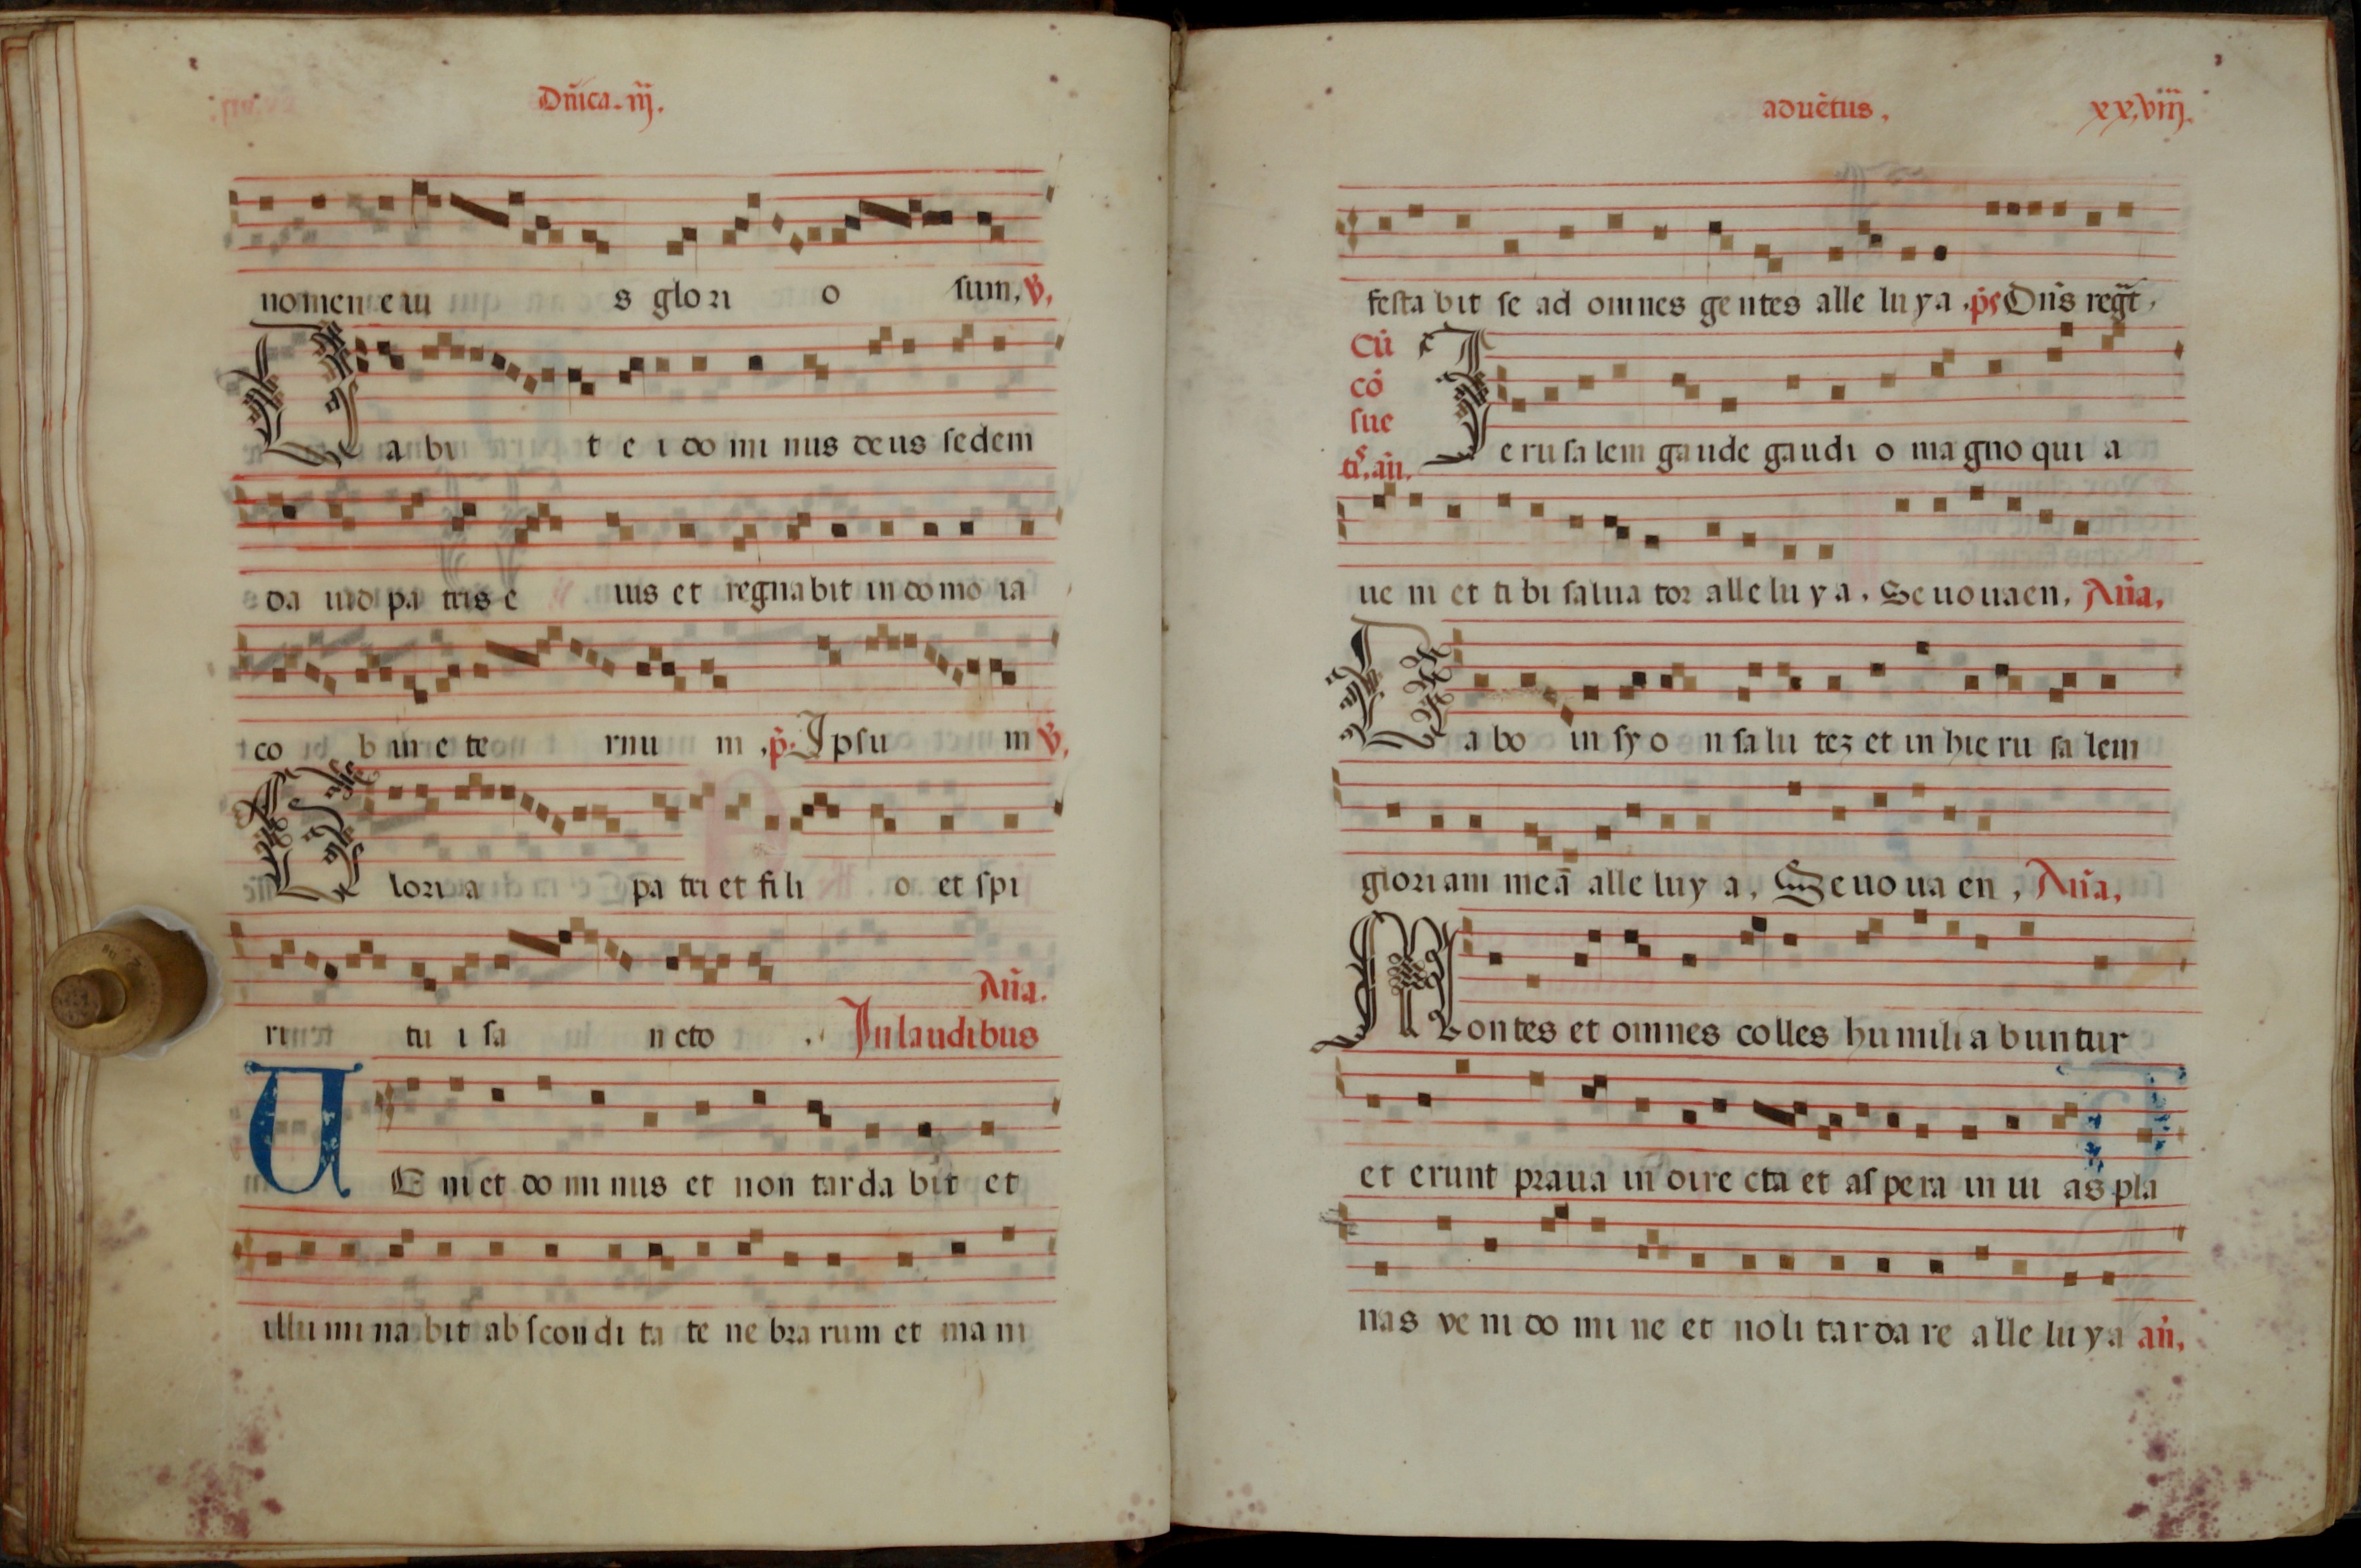 Dñica. iij.
nomen e iu s glori o sum, ℣.
Dabi t e i do mi nus deus sedem
da uid pa tris e ius et regnabit in domo ia
co b in e te rnu m .p̃. Ipsu m ℣.
Glori a pa tri et fili o et spi
ritu tu i sa ncto . Aña.
In laudibus
UE niet do mi nus et non tarda bit et
illu mi na bit ab scondi ta te ne bra rum et ma ni
aduẽtus, xx,viij.
festa bit se ad omnes gentes alle lu ya .ps Dñs regt̃,
Cũ
cõ
sue
tis. añ. Jerusalem gaude gaudi o magno qui a
ue ni et ti bi salua tor alleluya. Seuouaen, Aña,
Dabo in sy o n salu tez et in hieru salem
gloriam meã alleluy a, Seuouaen, Aña,
Montes et omnes colles humilia buntur
et erunt praua in dire cta et aspera in ui as pla
nas ve ni do mi ne et noli tardare alleluya añ,